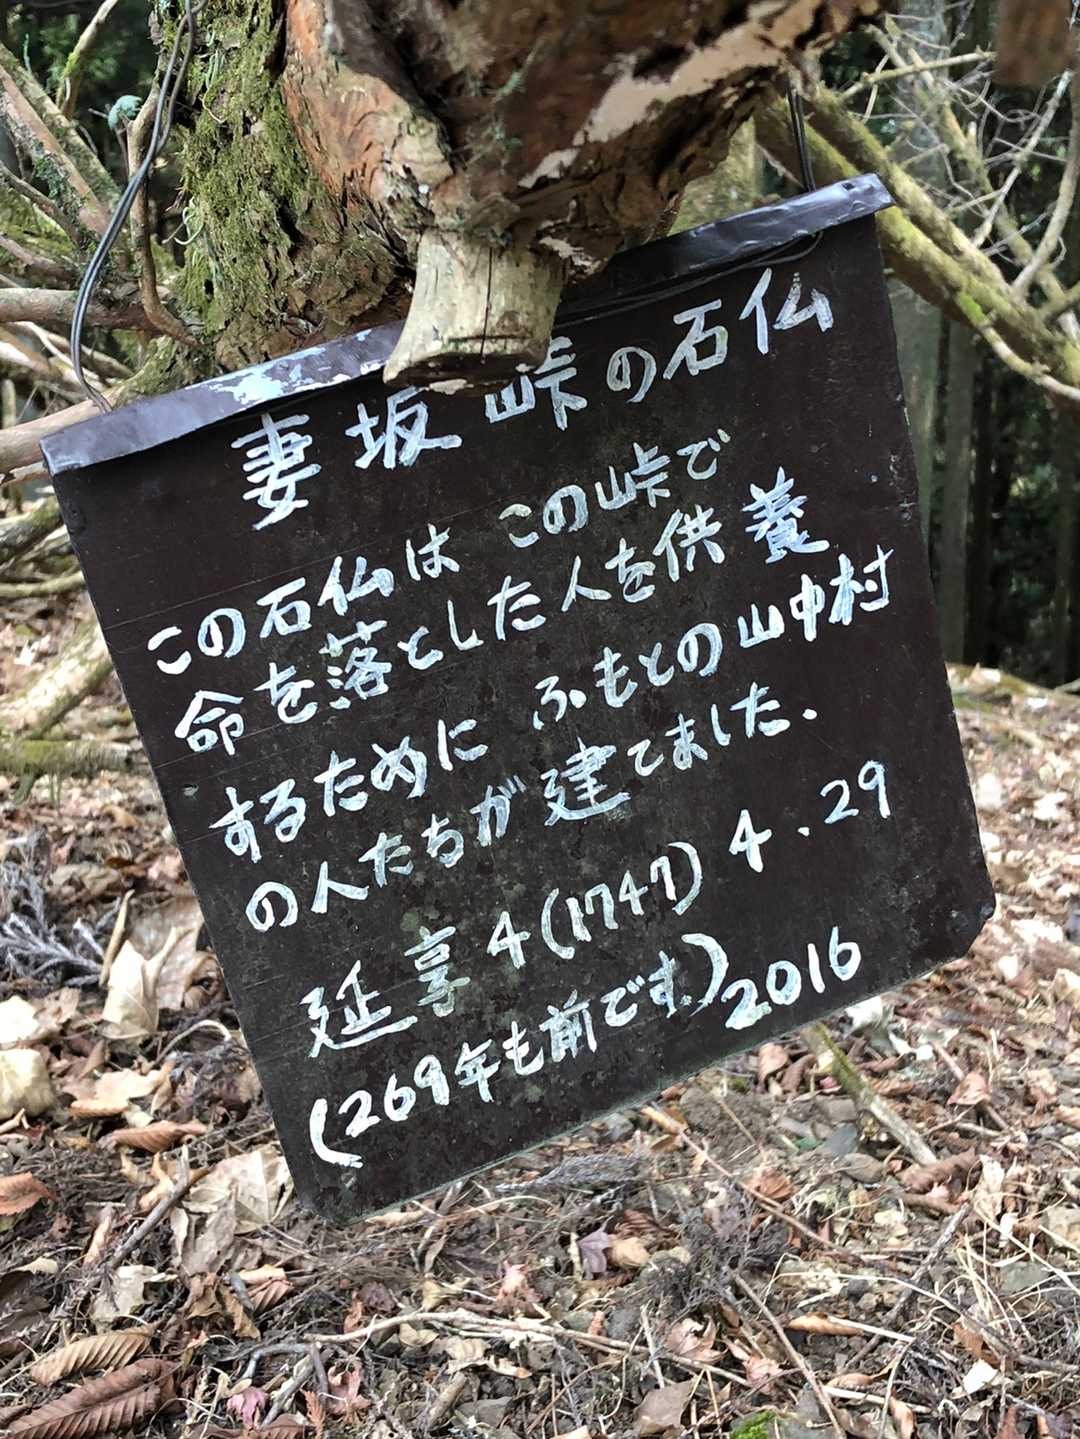 妻坂峠の石仏
この石仏は この峠で
命を落とした人を供養
するために ふもとの山中村
の人たちが建てました.
延享4(1747) 4.29
(269年も前です) 2016